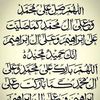 اللهم صل على محمد
وعلى آل محمد كما صليت
على إبراهيم وعلى آل إبراهيم
إنك حميد مجيد
اللهم بارك على محمد وعلى
آل محمد كما باركت على
إبراهيم وعلى آل إبراهيم